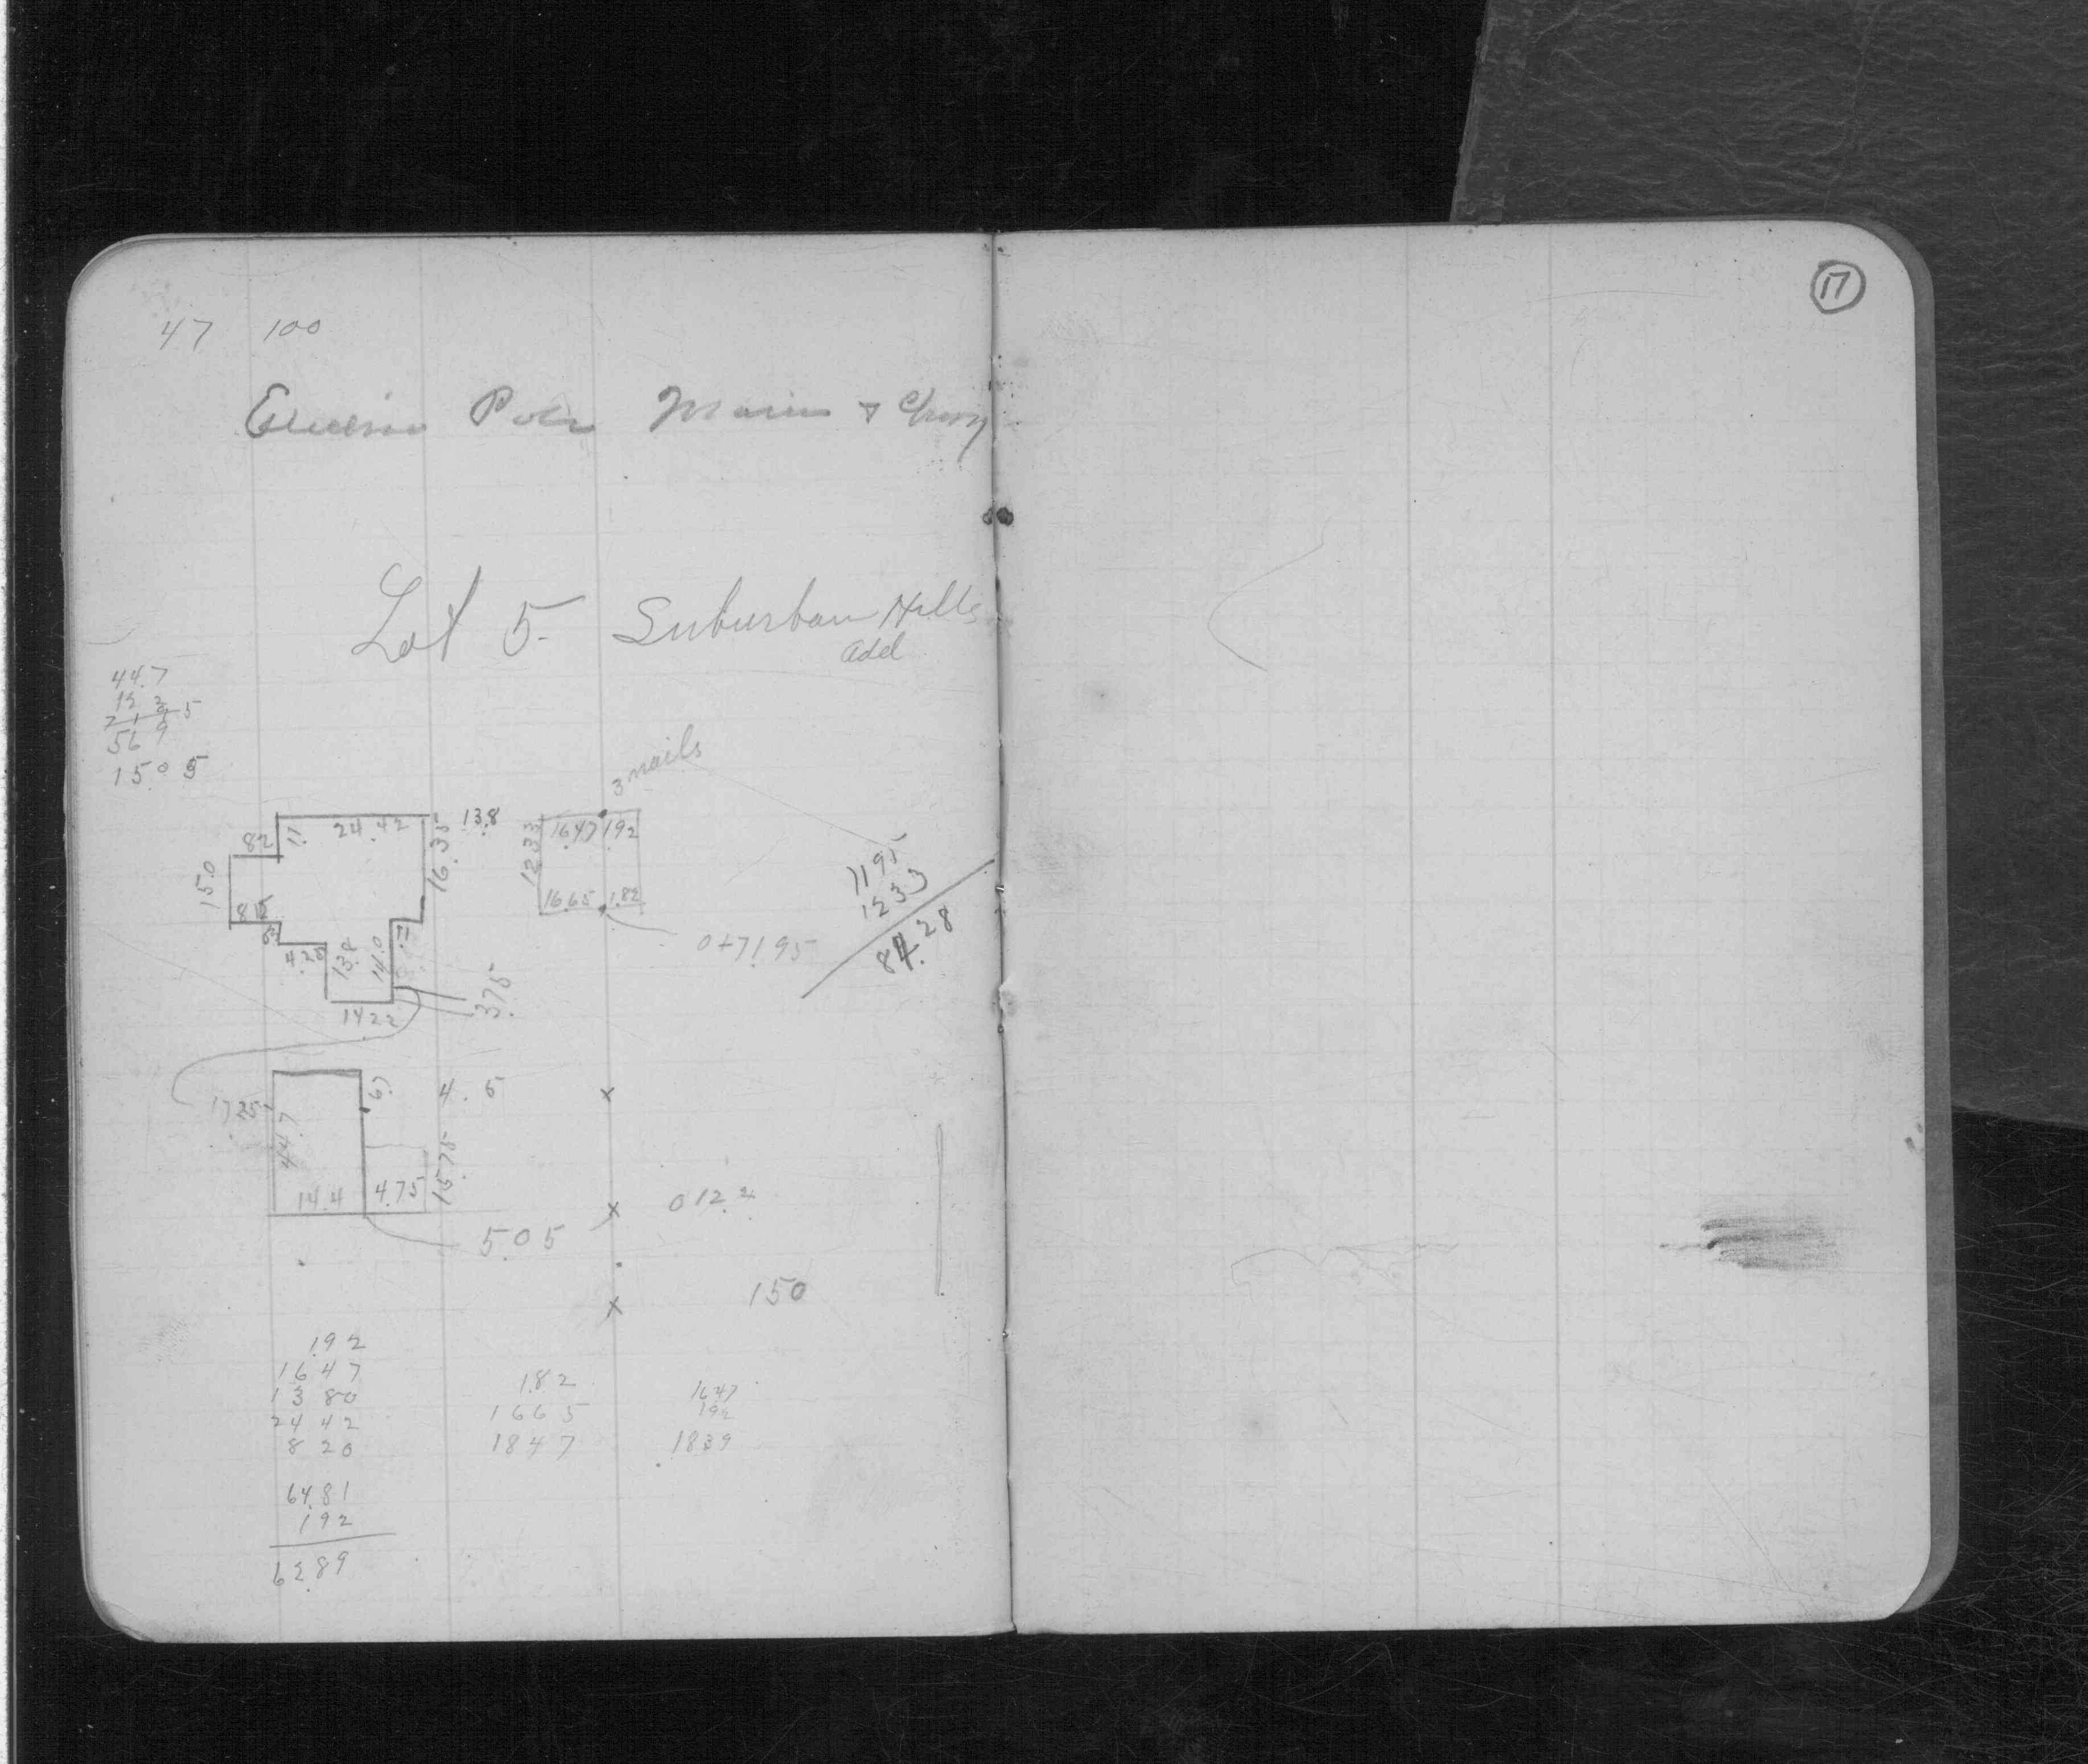 17
47 100
Electric Pole Main & Cherry
Lot 5. Suburban Hills
Add
44.7
12 2
56 9
150 5
3 nails
82
11.
24.42
16.35
13.8
12.33
16.47
1.92
16.65
1.82
15.0
4.25
13.8
14.0
11.
14.22
3.75
0+71.95
71 95
12 33
84.28
17.25
67.
4.5
44.7
14.4
4.75
15.75
5.05
0 12.2
150
1.92
16 47
13 80
24 42
8 20
64.81
1 92
62.89
1.82
16 65
18 47
16.47
1.92
18.39